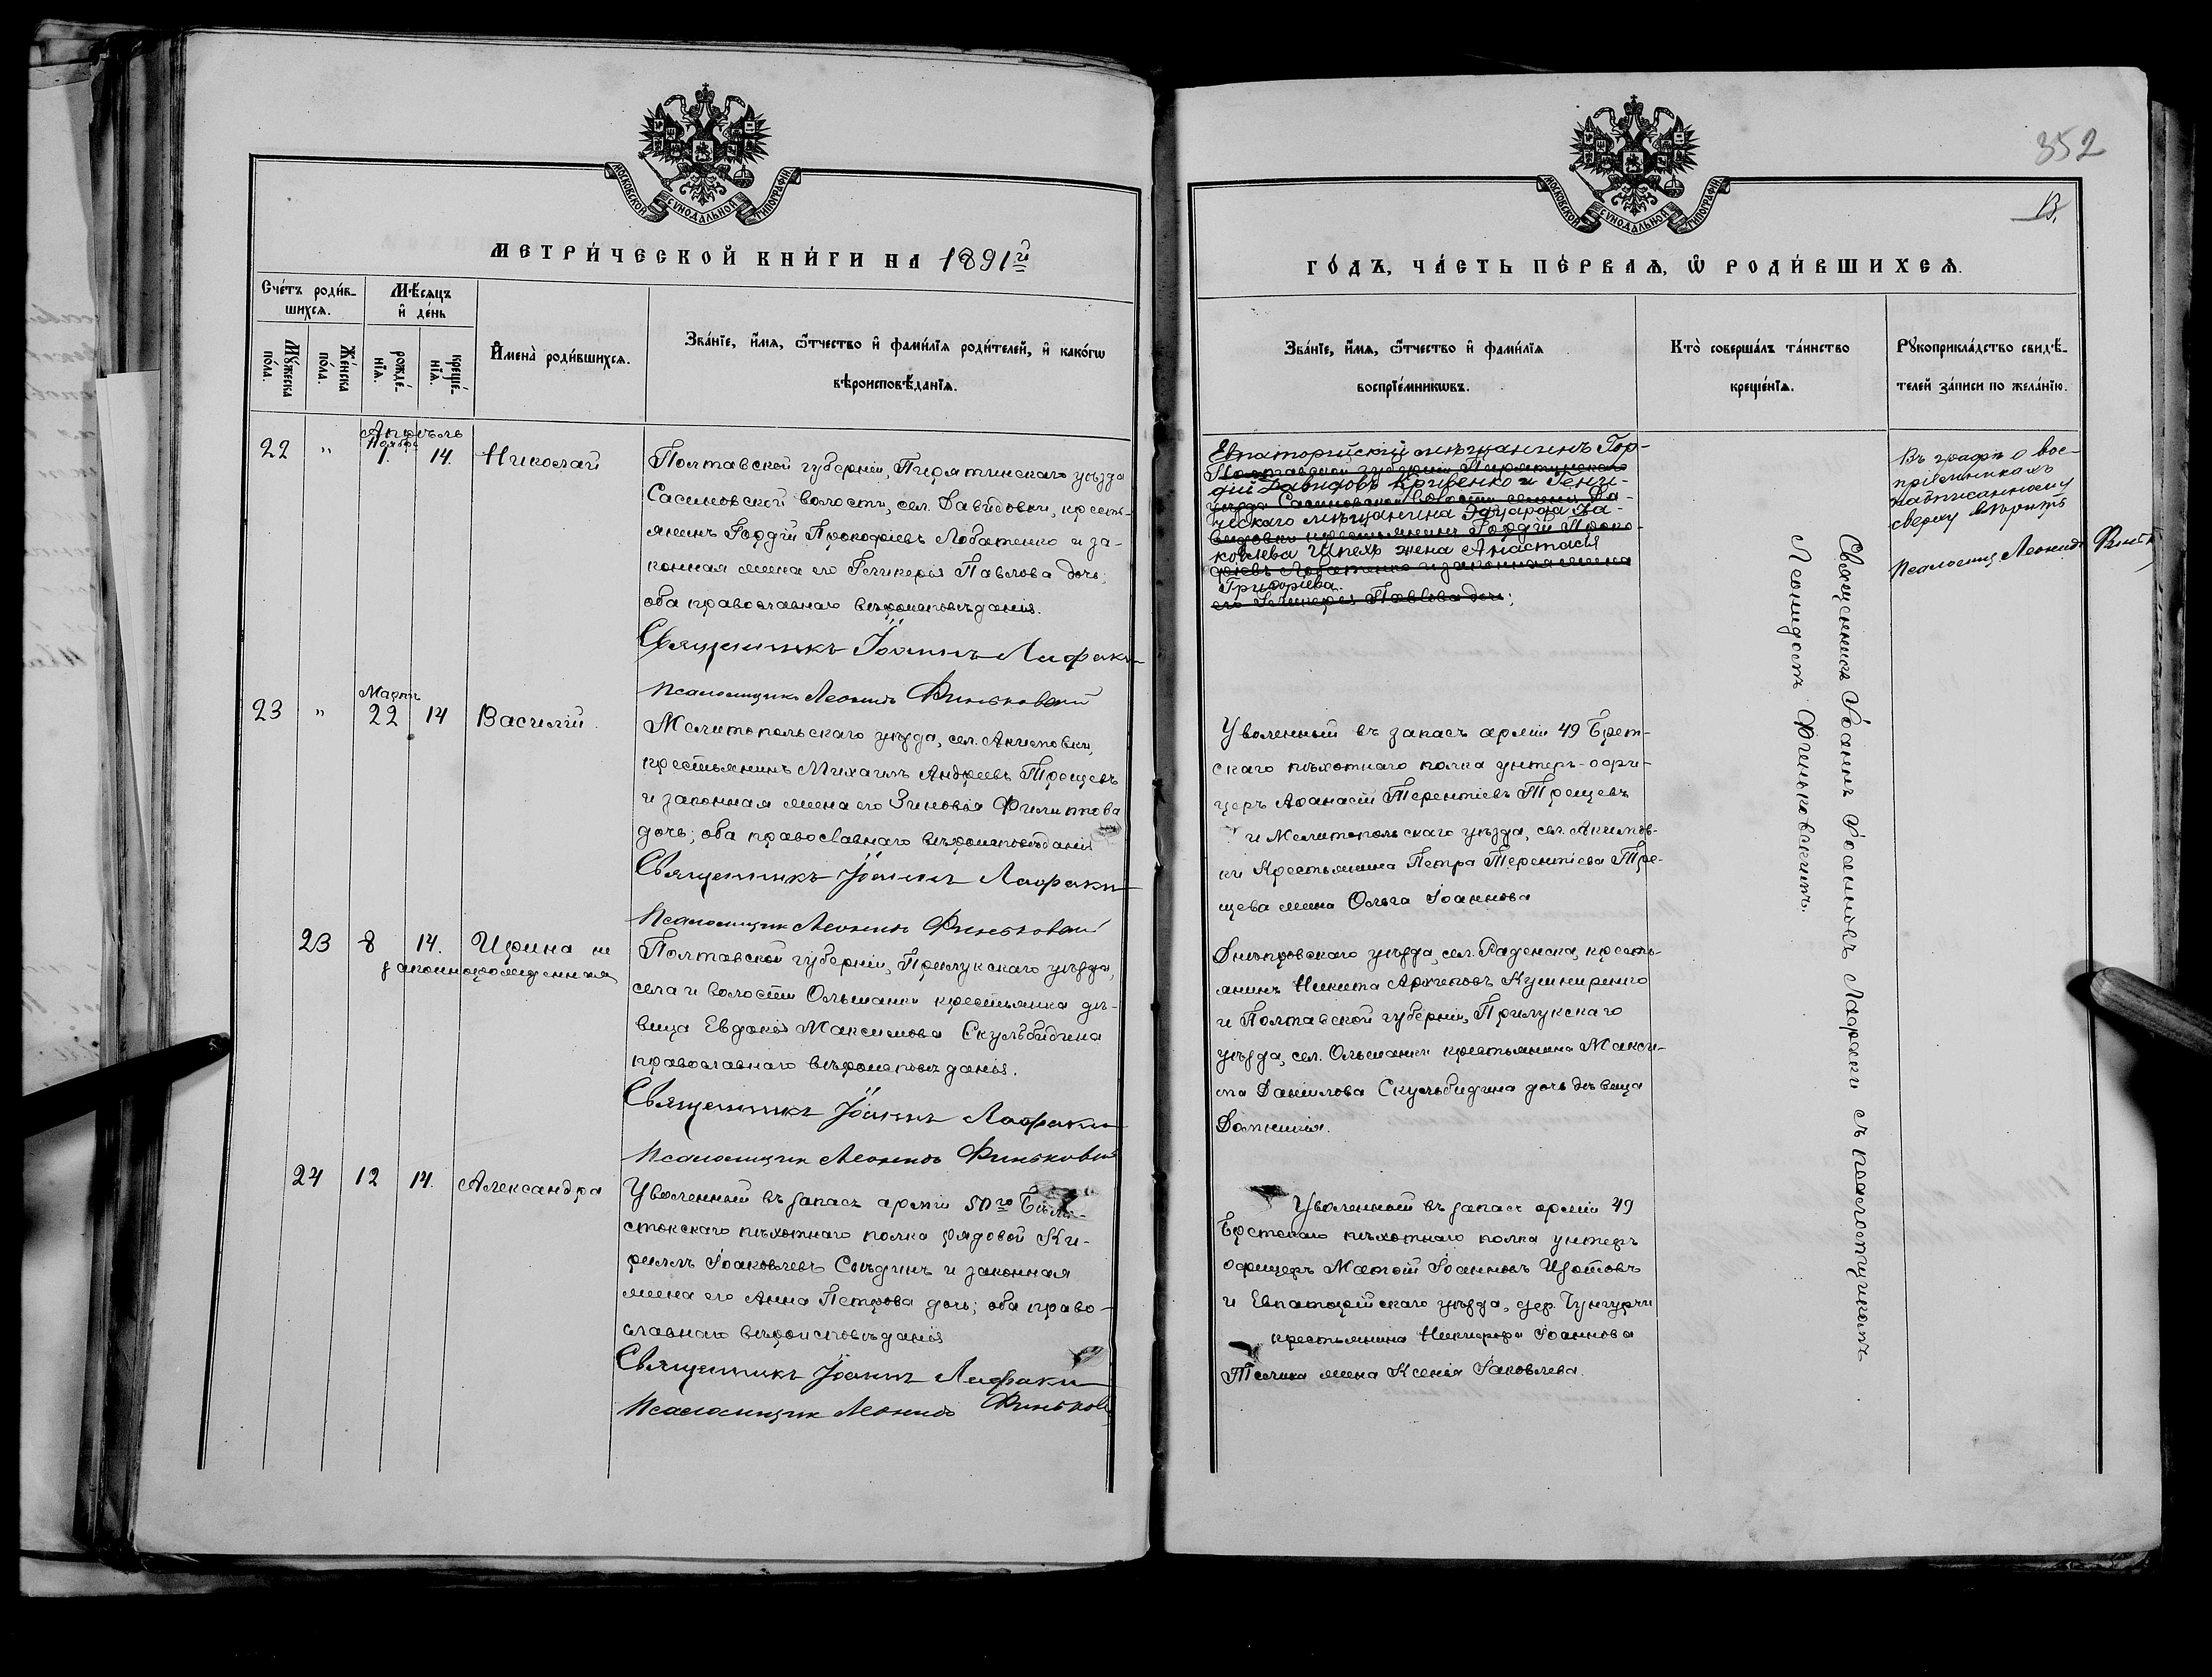 МОСКОВСКОЙ СУНОДАЛЬНОЙ ТИПОГРАФІИ
МЕТРИ́ЧЕСКОЙ КНИ́ГИ НА 1891й
Сче́тъ роди́в-
шихсѧ.
Мѣ́сѧцъ
и҆ де́нь
Мꙋ́жеска
по́ла.
Же́нска
по́ла.
рожде́-
нїѧ.
креще́-
нїѧ.
И҆мена̀ роди́вшихсѧ.
Зва́нїе, и҆́мѧ, ѻ҆́тчество и҆ фами́лїѧ роди́телей, и҆ како́гѡ
вѣроисповѣ́данїѧ.
Апрѣль
22 " 1. 14. Николай
Полтавской губерніи, Пирятинскаго уѣзда
Сасиновской волости, сел. Давидовки, кресть-
янинъ Гордій Прокофіевъ Лобатенко и за-
конная жена его Гликерія Павлова дочь;
оба православнаго вѣроисповѣданія.
Священникъ Іоаннъ Лафаки
Псаломщикъ Леонидъ Финьковскій
Мартъ
23 " 22 14 Василій.
Мелитопольскаго уѣзда, сел. Акимовки,
крестьянинъ Михаилъ Андреевъ Трещевъ
и законная жена его Зиновія Филиппова
дочь; оба православнаго вѣроисповѣданія
Священникъ Іоаннъ Лафаки
Псаломщикъ Леонидъ Финьковскій
23 8 14. Ирина не
законнорожденная
Полтавской губерніи, Прилукскаго уѣзда,
села и волости Ольшанки крестьянка дѣ-
вица Евдокія Максимова Скульбидина
православнаго вѣроисповѣданія.
Священникъ Іоаннъ Лафаки
Псаломщикъ Леонидъ Финьковскій
24 12 14. Александра
Уволенный въ запасъ арміи 50го Бѣло-
стокскаго пѣхотнаго полка рядовой Ки-
риллъ Іоаковлевъ Снѣдинъ и законная
жена его Анна Петрова дочь; оба право-
славнаго вѣроисповѣданія
Священникъ Іоаннъ Лафаки
Псаломщикъ Леонидъ Финьков
352
13.
МОСКОВСКОЙ СУНОДАЛЬНОЙ ТИПОГРАФІИ
ГО́ДЪ, ЧА́СТЬ ПЕ́РВАѦ, Ѡ҆ РОДИ́ВШИХСѦ.
Зва́нїе, и҆́мѧ, ѻ҆́тчество и҆ фами́лїѧ
воспрїе́мникѡвъ.
Кто̀ соверша́лъ та́инство
креще́нїѧ.
Рꙋкоприкла́дство свидѣ́-
телей за́писи по жела́нїю.
Евпаторійскій мѣщанинъ Гор-
Полтавской губерніи Пирятинскаго
дій Давидовъ Кривенко и Гени-
уѣзда Сасиновской волости селенія Да-
ческаго мѣщанина Эдуарда Іа-
видовки крестьянинъ Гордій Проко-
ковлева Шпехъ жена Анастасія
фіевъ Лобатенко и законная жена
Григоріева.
его Гликерія Павлова дочь;
Въ графѣ о вос-
пріемникахъ
надписанному
сверху вѣрить
Псаломщ Леонидъ Финьк
Уволенный въ запасъ арміи 49 Брест-
скаго пѣхотнаго полка унтеръ-офи-
церъ Афанасій Терентіевъ Трещевъ
и Мелитопольскаго уѣзда, сел. Акимов-
ки крестьянина Петра Терентіева Тре-
щева жена Ольга Іоаннова
Днѣпровскаго уѣзда, сел. Раденска, кресть-
янинъ Никита Архиповъ Кушниренко
и Полтавской губерніи, Прилукскаго
уѣзда, сел. Ольшанки крестьянина Макси-
ма Данилова Скульбидина дочь дѣвица
Домникія.
Уволенный въ запасъ арміи 49
Брестскаго пѣхотнаго полка унтеръ
офицеръ Матфій Іоанновъ Изотовъ
и Евпаторійскаго уѣзда, дер. Чунгурчи
крестьянина Никифора Іоаннова
Телика жена Ксенія Іаковлева.
Священникъ Іоаннъ Іоанновъ Лафаки съ псаломщикомъ
Леонидомъ Финьковскимъ.